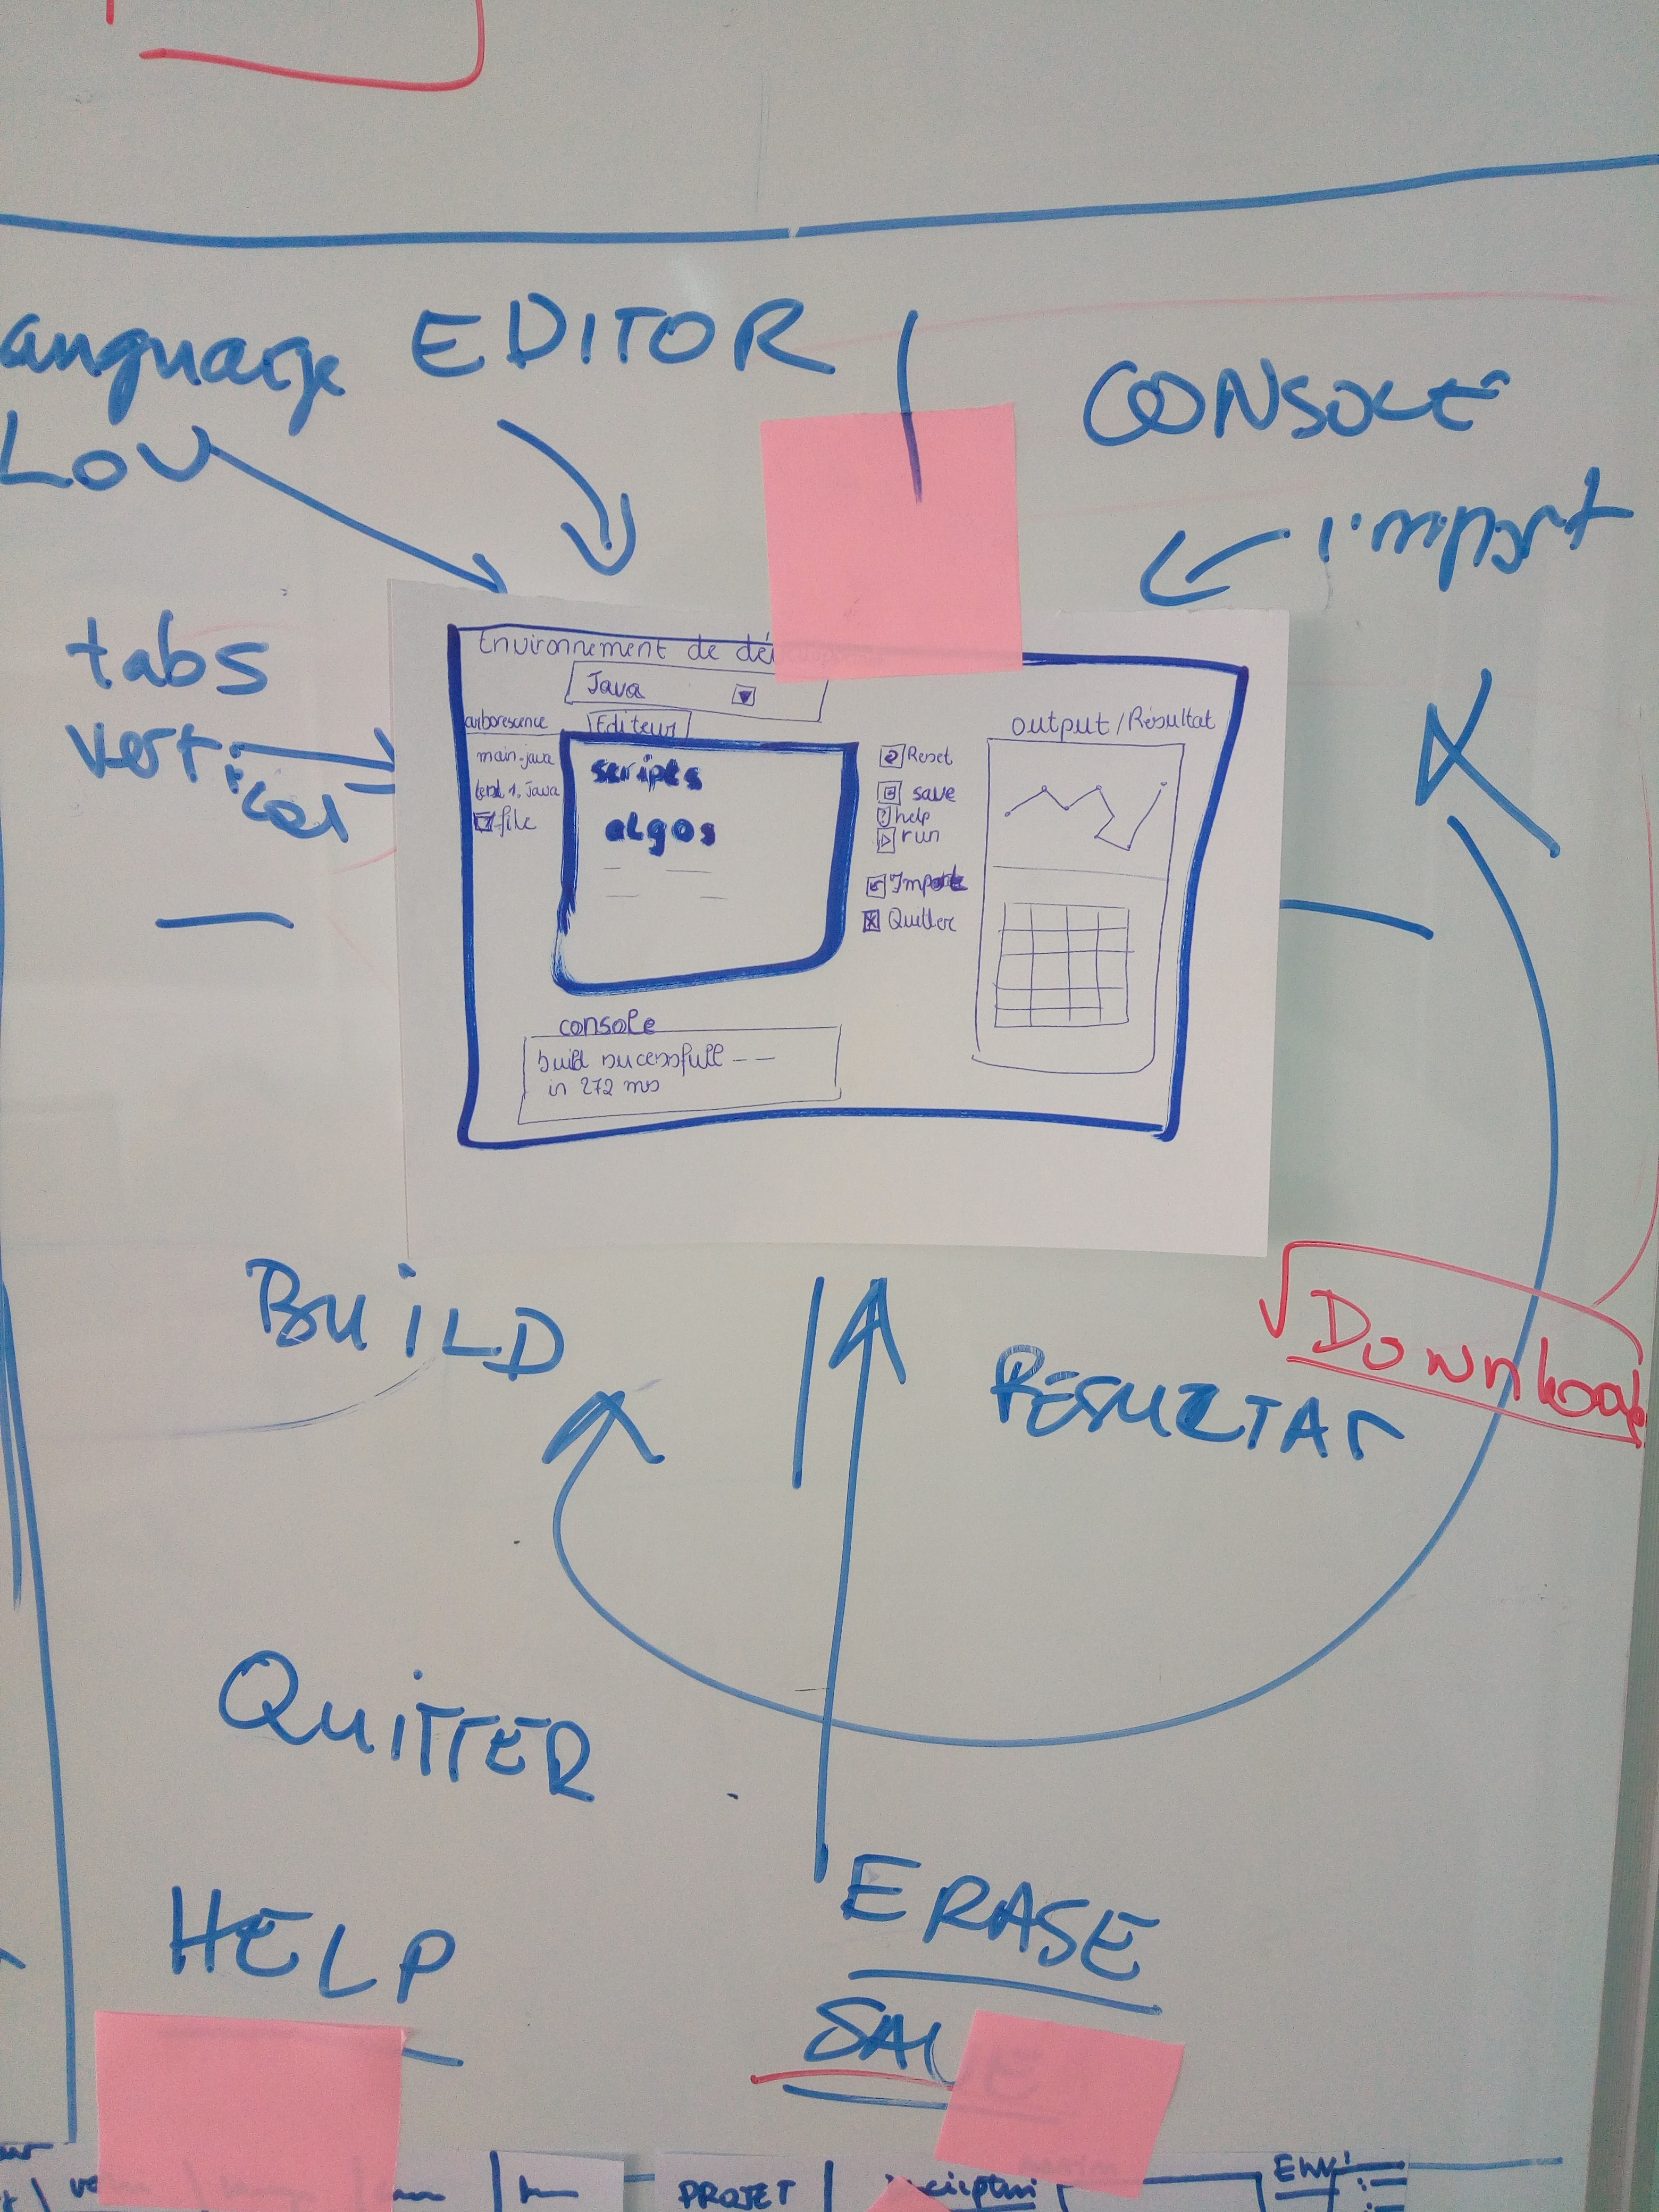 anguage EDITOR
LOV
CONSOLE
import
tabs
vertical
Environnement de dé
Java
arborescence
Editeur
main.java
file
scripts
algos
Reset
save
help
run
Quitter
output/Résultat
console
build sucessfull --
in 272 ms
BUILD
RESULTAT
Download
QUITTER
HELP
ERASE
PROJET